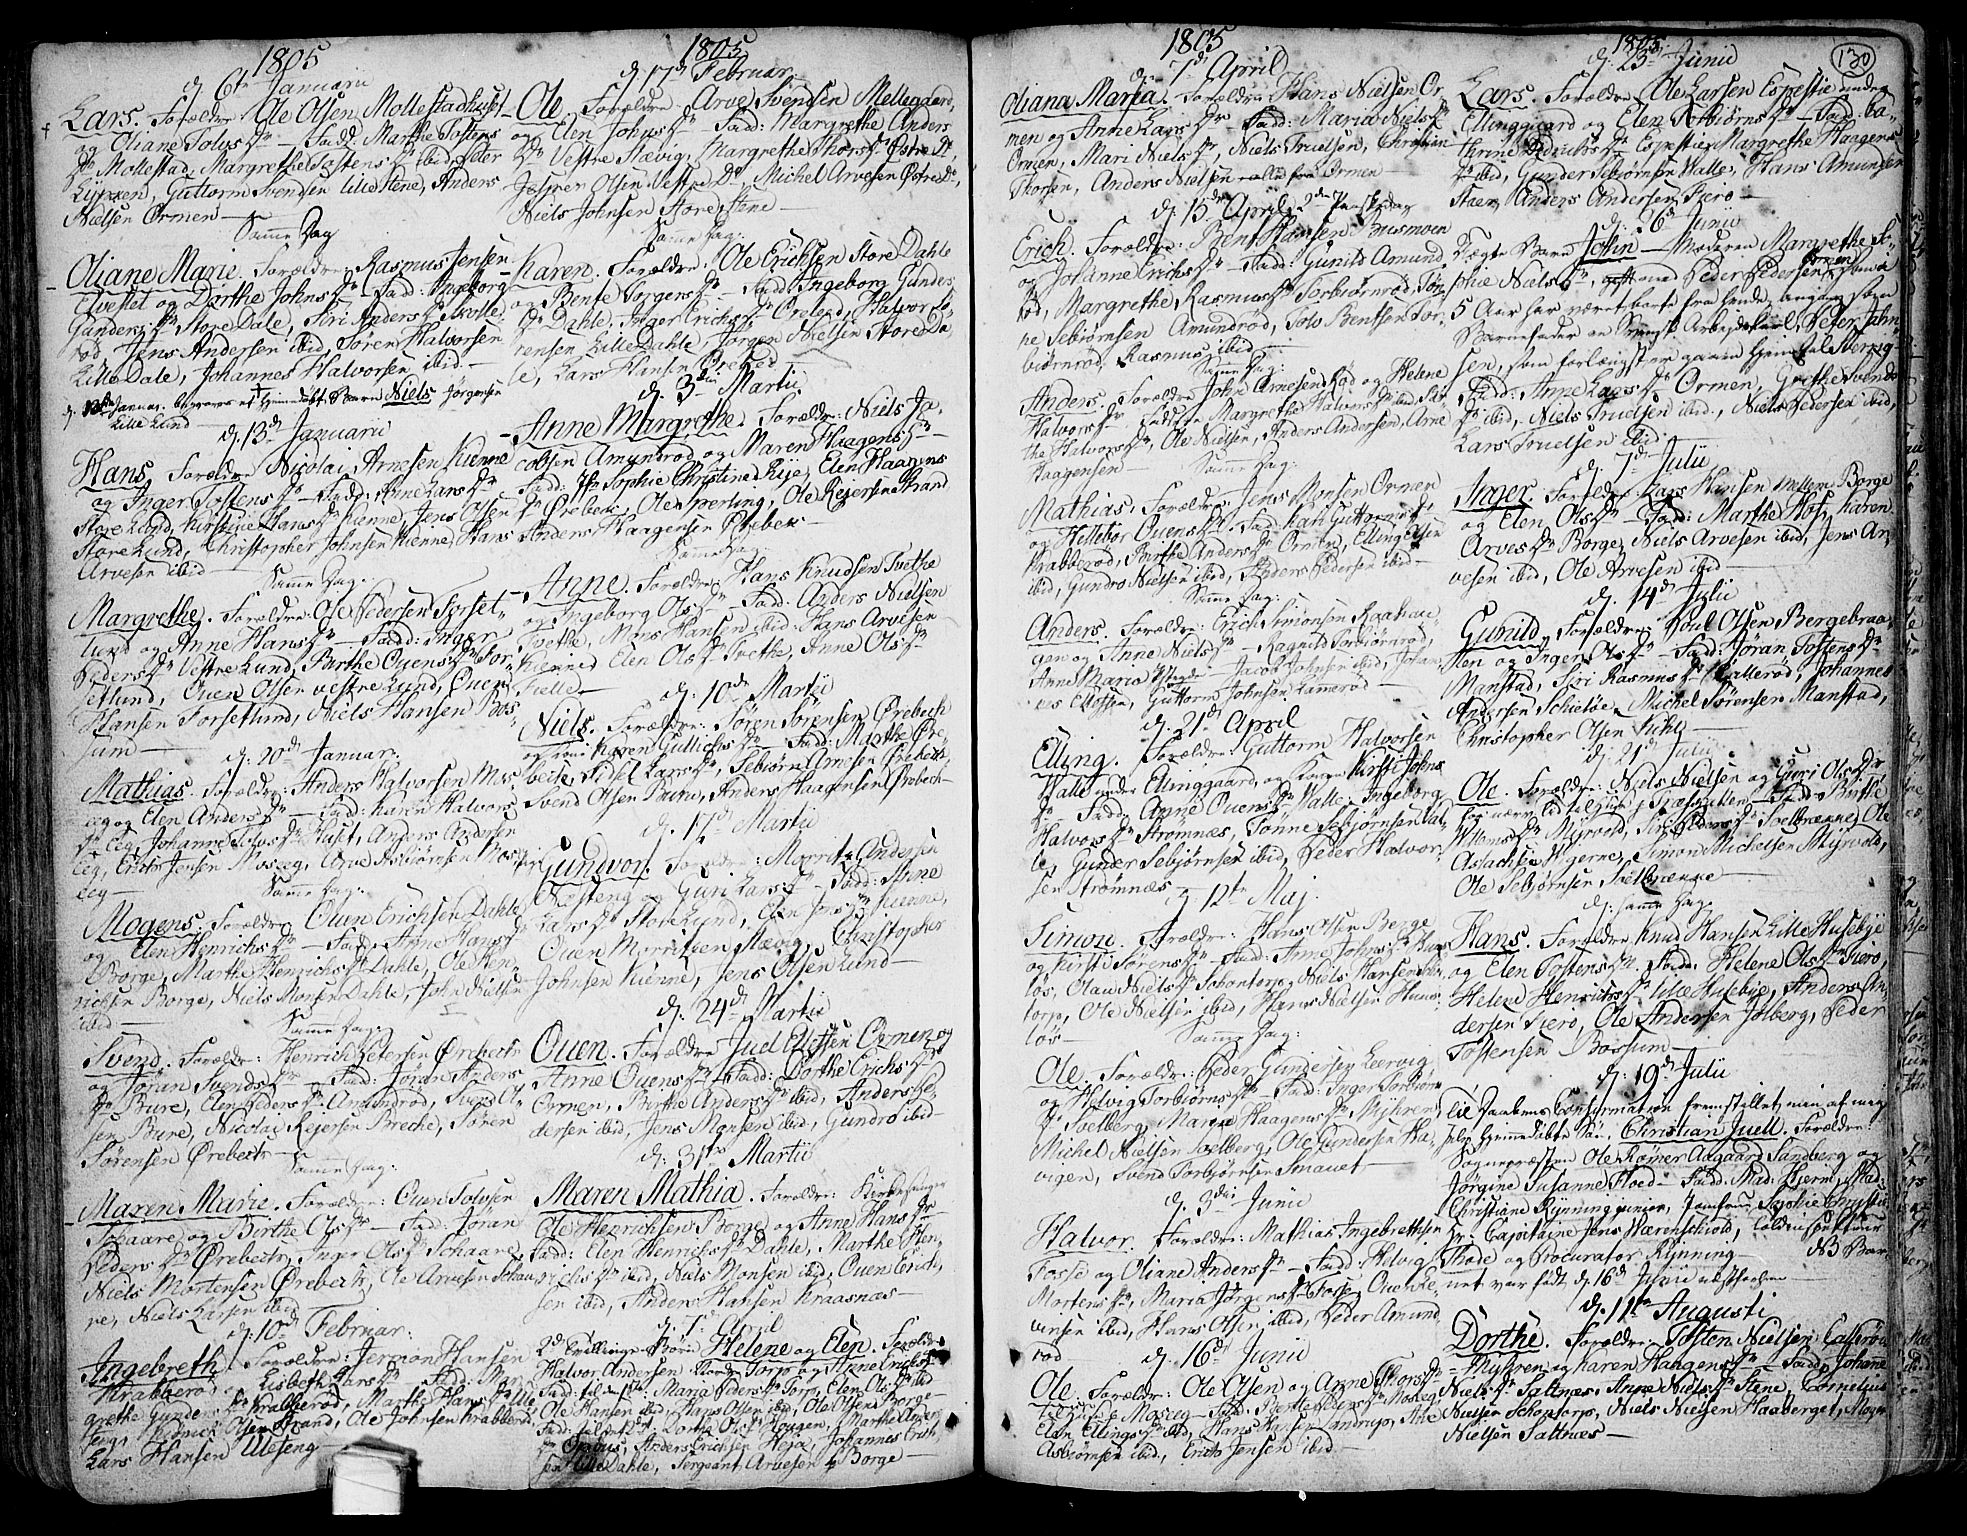 1805
d. 6te Januarii
Lars. Forældre Ole Olsen Mollestadhuset
og Oliane Tolvs Dr — Fadd: Marthe Tostens
Dr Mollestad, Margrethe Tostens Dr ibid, Peder
Guttorm Svendsen Lille Stene, Anders
Nielsen Ørmen —
Samme Dag
Oliane Marie. Forældre: Rasmus Jensen
og Dorthe Johns Dr — Fadd: Ingeborg
Gunders Dr Store Dale, Siri Anders Dr
rød, Jens Andersen ibid, Søren Halvorsen
Lille Dale, Johannes Halvorsen ibid. —
Januar. hjemdøbt Barn Niels Jørgensen
Lille Lund —
d. 13de Januarii
Hans. Forældre Nicolai Arnesen Kienne
og Inger Tostens Dr — Fadd: Anne Lars Dr
Store Lund, Kirstine Hans Dr Kienne, Jens Olsen
Store Lund, Christopher Johnsen Kienne, Hans
Arvesen ibid —
Samme Dag.
Margrethe. Forældre: Ole Pedersen Forset-
lund og Anne Hans Dr — Fadd: Inger
Peders Dr Vestre Lund, Birthe Ouens Dr For-
setlund, Ouen Olsen vestre Lund, Ouen
Hansen Forsetlund, Niels Hansen Bos-
sum —
d. 20de Januar.
Mathias. Forældre: Anders Halvorsen Mos-
eeg og Elen Anders Dr — Fadd: Karen Halvors
Dr Eeg, Johanne Tolvs Dr Huset, Anders Andersen
Eeg, Erich Jensen Moseeg, Arve Asbiørnsen Mos-
eeg —
Samme Dag.
Mogens. Forældre: Ouen Erichsen Dahle
og Elen Henrichs Dr — Fadd: Anne Hans Dr
Borge, Marthe Henrichs Dr Dahle, Ole Hen-
richsen Borge, Niels Monsen Dahle, John Nielsen
ibid —
Samme Dag.
Svend. Forældre: Henrich Petersen Ørebech
og Jøran Svends Dr — Fadd: Jøran Anders
Dr Bure, Elen Peders Dr Amundrød, Svend Ol-
sen Bure, Nicolai Rejersen Breche, Søren
Sørensen Ørebech —
Samme Dag:
Maren Marie. Forældre: Ouen Tolvsen
og Birthe Ols Dr — Fadd: Jøran
Peders Dr Ørebech, Inger Ols Dr Schaare,
Niels Mortensen Ørebech, Ole Arvesen Schaa-
re, Niels Larsen ibid
d. 10de Februar:
Ingebreth. Forældre: Jermon Hansen
Krabberød og Lisbeth Lars Dr — Fadd: Mar-
grethe Gunders Dr Krabberød, Marthe Hans Dr Ule-
seng, Olsen Strand, Ole Johnsen Krabberød,
Lars Hansen Uleseng —
1805
d. 17de Februar
Ole. Forældre: Arve Svendsen Mellegaard,
og Elen Johns Dr — Fadd: Margrethe Anders
Dr Vestre Mævig, Margrethe Thors Dr Østre Do,
Jesper Olsen Vestre Do, Michel Arvesen Østre Do,
Niels Johnsen Store Stene —
Samme Dag:
Karen. Forældre: Ole Erichsen Store Dahle
og Bente Torgers Dr — Fadd: Ingeborg Gunders
Dr Dahle, Inger Erichs Dr Oreled, Halvor Sø-
rensen Lille Dahle, Jørgen Nielsen Store Da-
le, Lars Hansen Oreled —
d. 3die Martii
Anne Margrethe. Forældre: Niels Ja-
cobsen Amundrød og Maren Haagens Dr —
Fadd: Sophie Christine Leje, Elen Haagens
Dr Ørebech, Ole Sperling, Ole Rejersen Strand
Anders Haagensen Ørebek —
Samme Dag:
Anne. Forældre: Hans Knudsen Tvethe
og Ingeborg Ols Dr — Fadd: Anders Nielsen
Tvethe, Mons Hansen ibid, Hans Arvesen
Kienne, Elen Ols Dr Tvethe, Anne Ols Dr
Tvethe. —
d. 10de Martii
Niels. Forældre: Søren Sørensen Ørebech
og Karen Gullichs Dr — Fadd: Marthe Øre-
bech, Sidsel Lars Dr, Tebiørn Arnesen Ørebech,
Svend Olsen Bure, Anders Haagensen Ørebech —
d. 17de Martii
Gundvor. Forældre: Mouritz Andersen
Næsteng og Guri Lars Dr — Fadd: Anne
Lars Dr Store Lund, Elen Jens Dr Kienne,
Ouen Mouritzen Mævig, Christopher
Johnsen Kienne, Jens Olsen Lund —
d. 24de Martii
Ouen. Forældre Juel Ellefsen Ørmen og
Anne Ouens Dr — Fadd: Dorthe Erichs Dr
Ørmen, Birthe Anders Dr ibid, Anders Pe-
dersen ibid, Jens Monsen ibid, Gundro ibid —
d. 31te Martii
Maren Mathia. Forældre: Kirkesanger
Ole Henrichsen Borge og Anne Hans Dr —
Fadd: Elen Henrichs Dr Dahle, Marthe Hen-
richs Dr ibid, Niels Monsen ibid, Ouen Erich-
sen ibid, Anders Hansen Kraasnæs —
d. 7de April
2de Tvillinge Børn Helene og Elen. Forældre
Halvor Andersen Torp og Anne Erichs Dr —
Fadd: til den 1ste: Maria Peders Dr Torp, Elen Ols Dr ibid
Ole Hansen ibid, Hans Olsen ibid, Ole Olsen Borge —
Fadd: til den 2de: Dorthe Ols Dr Hougen, Marthe Anders
Dr Anders Erichsen Heja, Johannes Erich-
sen Lille Dahle, Sergeant Arvesen Borge —
1805
d. 7de April
Oliana Maria. Forældre Hans Nielsen Ør-
men og Anne Lars Dr — Fadd: Maria Niels Dr
Ørmen, Mari Niels Dr, Niels Truelsen, Christian
Thorsen, Anders Nielsen alle fra Ørmen —
d. 15de April, 2den Paaskedag
Erich. Forældre: Bent Hansen Buemoen
og Johanne Erichs Dr — Fadd: Gunild Amund-
rød, Margrethe Rasmus Dr Torbiørnrød, Tøn-
ne Sebiørnsen Amundrød, Tolv Bentsen Tor-
biørnrød, Rasmus ibid —
Samme Dag:
Anders. Forældre John Arnesen Rød og Helene
Halvors Dr — Fadd: Margrethe Halvors Dr ibid,
Halvors Dr, Ole Nielsen, Anders Andersen, Arne
Haagensen —
Samme Dag:
Mathias. Forældre: Jens Monsen Ørmen
og Hillebor Ouens Dr — Fadd: Kari Guttorms Dr
Krabberød, Birthe Anders Dr Ørmen, Elling Olsen
ibid, Gundro Nielsen ibid, Peders Pedersen ibid —
Samme Dag:
Anders. Forældre: Erich Simonsen Raahau-
gen og Anne Niels Dr — Ragnild Torbiørnrød,
Anne Maria Jacob Johnsen ibid, Johan-
nes Ellefsen, Guttorm Johnsen Kamerød —
d. 21de April
Elling. Forældre: Guttorm Halvorsen
Walle under Ellinggaard, og Karen Kirsti Johns
Dr — Fadd: Anne Ouens Dr Walle, Ingeborg
Halvors Dr Strømnæs, Tønne Sebjørnsen Val-
le, Gunder Sebjørnsen ibid, Peder Halvor-
sen Strømnæs —
d. 12te Maj.
Simon. Forældre: Hans Olsen Berge
og Kirsti Sørens Dr — Fadd: Anne Johns Dr Huns-
løs, Olau Niels Dr Sobontorp, Niels Hansen Scho-
torp, Ole Nielsen ibid, Hans Nielsen Huns-
løs —
Samme Dag:
Ole. Forældre: Peder Gundersen Leervig
og Helvig Torbiørns Dr — Fadd: Inger Torbiørns
Dr Svelberg, Maren Haagens Dr Myhren,
Michel Nielsen Svelberg, Ole Gundersen Ha-
vigen, Svend Torbjørnsen Smauet —
d. 3die Junii
Halvor. Forældre: Mathias Ingebrethsen
Fosse og Oliane Anders Dr — Fadd: Helvig
Mortens Dr, Maria Jørgens Dr Fosse, Ouen
versen ibid, Hans Olsen ibid, Peder Amund-
rød —
d. 16de Junii
Ole. Forældre: Ole Olsen og Anne Thors Dr
til huse i Moseeg — Fadd: Berthe Peders Dr Moseeg
Elen Ellings Dr ibid, Hans Hansen Jandrup, Arve
Asbiørnsen ibid, Erich Jensen ibid —
1805
130
d. 23de Junii
Lars. Forældre: Ole Larsen Espettie under
Ellinggaard og Elen Torbiørns Dr — Fadd: Ca-
thrine Didrichs Dr Espettie, Margrethe Haagens
Dr ibid, Gunder Sebjørnsen Walle, Hans Amundsen
Staen, Anders Andersen Sierø —
d. 26de Junii
Uægte Barn John — Moderen Margrethe So-
phie Niels Dr, gift med Peder Pedersen Ørmen, som i
5 Aar har været borte fra hende, angav som
Barnefader en Svensk Arbejdskarl, Peder John-
sen, som forlængst er gaaen hjem til Sverrig —
Fadd: Anne Lars Dr Ørmen, Grethe Svends
Dr ibid, Niels Truelsen ibid, Niels Pedersen ibid,
Lars Truelsen ibid.
d. 7de Julii
Inger. Forældre: Lars Hansen Mellem Borge
og Elen Ols Dr — Fadd: Marthe Karen
Arves Dr Borge, Niels Arvesen ibid, Jens Ar-
vesen ibid, Ole Arvesen ibid —
d. 14de Julii
Gunild. Forældre: Poul Olsen Bergebraa-
ten og Inger Ols Dr — Fadd: Jøran Tostens Dr
Manstad, Siri Rasmus Dr Callerød, Johannes
Andersen Schieløe, Michel Sørensen Manstad,
Christopher Olsen Kihle —
d. 21de Julii
Ole. Forældre: Niels Nielsen og Guri Ols Dr
for nærv. Tid til huse i Træschallen — Fadd: Birthe
Willems Dr Myrvold, Siri Peders Dr Svelbrænne, Ole
Aslachsen Hierne, Simon Michelsen Myrvold,
Ole Sebjørnsen Svelbrænne —
d. samme Dag:
Hans. Forældre Knud Hansen Lille Huseby
og Elen Tostens Dr. Fadd: Helene Ols Dr Sierø,
Helene Henrichs Dr Lille Huseby, Anders An-
dersen Sierø, Ole Andersen Jolberg, Peder
Tostensen Bossum —
d. 19de Julii
til Daabens Confirmation fremstillet min af mig
selv hjemmedøbte Søn, Christian Juell. Forældre:
Sognepræsten Ole Rømer Aagaard Sandberg og
Jørgine Susanne Floed — Fadd: Mad: Bjerni, Mad:
Christiane Rynning Jomfrue Sophie Chrystie
Hr. Capitaine Jens Værenschiold, Toldinspecteur
Thode og Procurator Rynning — NB Bar-
net var født d. 16de Junii næstforhen —
d. 11te Augusti
Dorthe. Forældre: Tosten Nielsen Callerød-
Myhren og Karen Haagens Dr — Fadd: Johane
Niels Dr Saltnæs, Anne Niels Dr Stene, Cornelius
Nielsen Schontorp, Niels Nielsen Haaberget, Mogens
Nielsen Saltnæs —